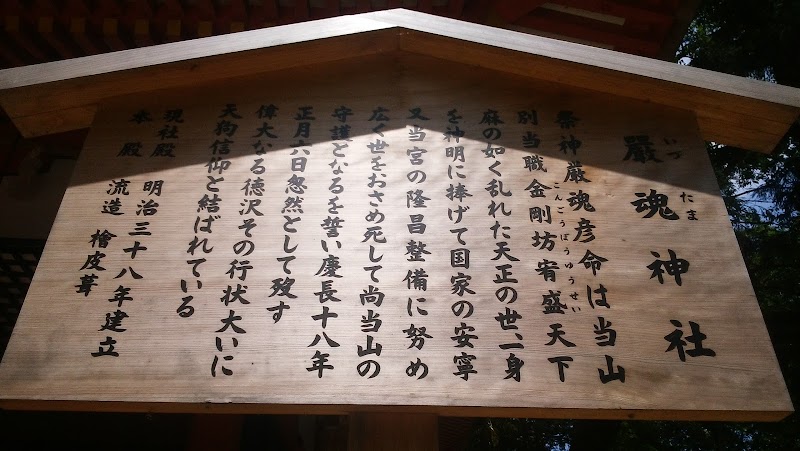 嚴魂神社
いづ
たま
祭神厳魂彦命は当山
別当職金剛坊宥盛天下
こんごうぼうゆうせい
麻の如く乱れた天正の世、一身
を神明に捧げて国家の安寧
又当宮の隆昌整備に努め
広く世をおさめ死して尚当山の
守護となるを誓い慶長十八年
正月六日忽然として歿す
偉大なる徳沢その行状大いに
天狗信仰と結ばれている
現社殿 明治三十八年建立
本殿 流造 檜皮葺